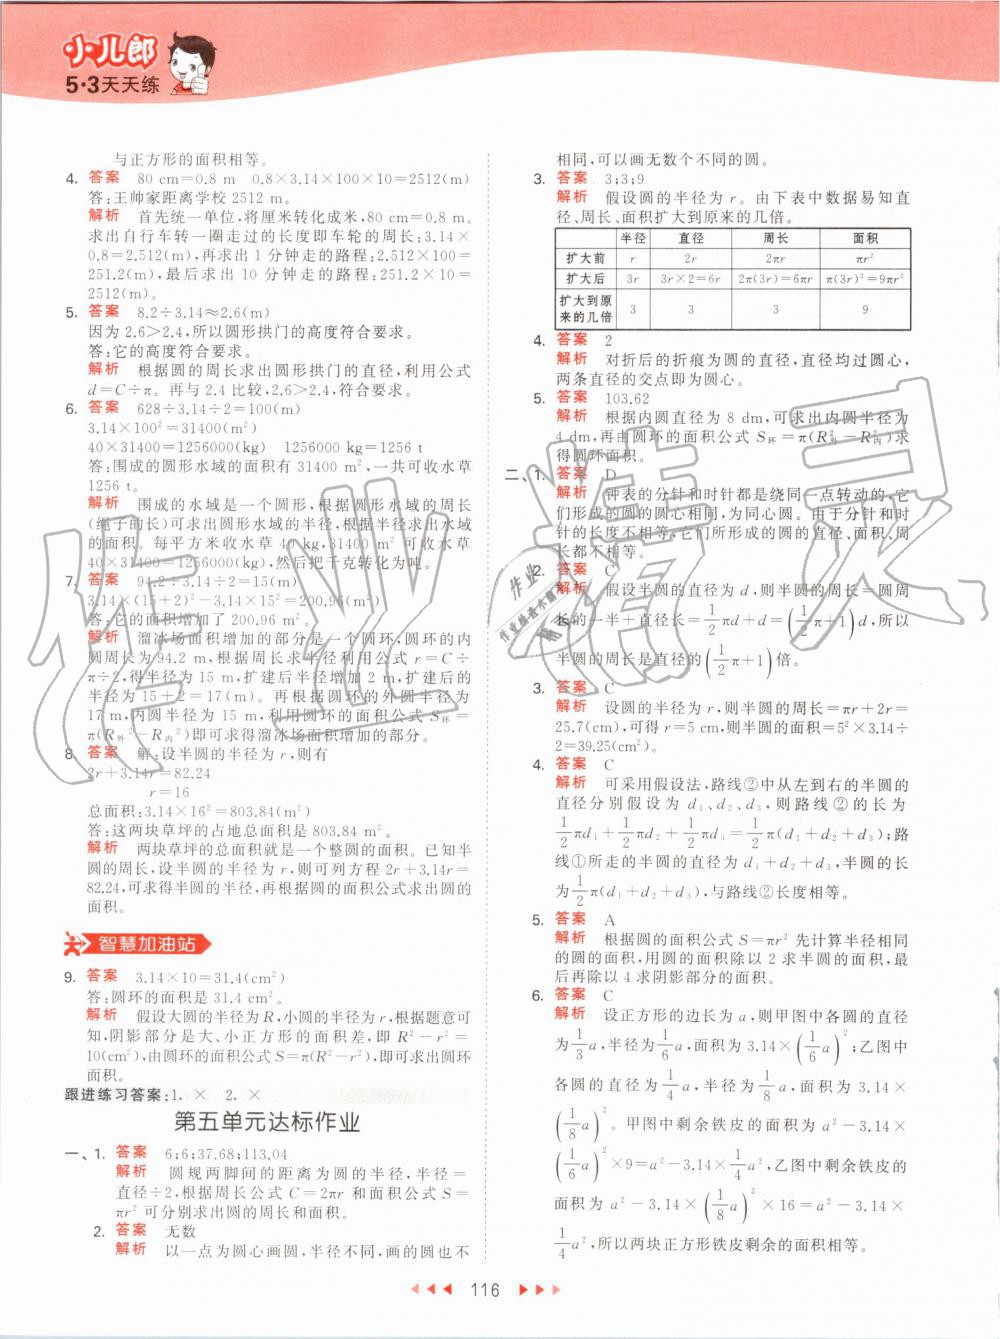 小儿郎
5·3天天练
与正方形的面积相等。
4. 答案 80 cm=0.8 m 0.8×3.14×100×10=2512(m)
答:王帅家距离学校 2512 m。
解析 首先统一单位,将厘米转化成米,80 cm=0.8 m。
求出自行车转一圈走过的长度即车轮的周长:3.14×
0.8=2.512(m),再求出 1 分钟走的路程:2.512×100=
251.2(m),最后求出 10 分钟走的路程:251.2×10=
2512(m)。
5. 答案 8.2÷3.14≈2.6(m)
因为 2.6>2.4,所以圆形拱门的高度符合要求。
答:它的高度符合要求。
解析 根据圆的周长求出圆形拱门的直径,利用公式
d=C÷π。再与 2.4 比较,2.6>2.4,符合要求。
6. 答案 628÷3.14÷2=100(m)
3.14×100²=31400(m²)
40×31400=1256000(kg) 1256000 kg=1256 t
答:围成的圆形水域的面积有 31400 m²,一共可收水草
1256 t。
解析 围成的水域是一个圆形,根据圆形水域的周长
(绳子的长)可求出圆形水域的半径,根据半径求出水域
的面积。每平方米收水草 40 kg,31400 m² 可收水草
40×31400=1256000(kg),然后把千克转化为吨。
7. 答案 94.2÷3.14÷2=15(m)
3.14×(15+2)²-3.14×15²=200.96(m²)
答:它的面积增加了 200.96 m²。
解析 溜冰场面积增加的部分是一个圆环,圆环的内
圆周长为 94.2 m,根据周长求半径利用公式 r=C÷
π÷2,得半径为 15 m,扩建后半径增加 2 m,扩建后的
半径为 15+2=17(m)。再根据圆环的外圆半径为
17 m,内圆半径为 15 m,利用圆环的面积公式 S环=
π(R外²-R内²)即可求得溜冰场面积增加的部分。
8. 答案 解:设半圆的半径为 r,则有
2r+3.14r=82.24
r=16
总面积:3.14×16²=803.84(m²)
答:这两块草坪的占地总面积是 803.84 m²。
解析 两块草坪的总面积就是一个整圆的面积。已知半
圆的周长,设半圆的半径为 r,则可列方程 2r+3.14r=
82.24,可求得半圆的半径,再根据圆的面积公式求出圆的
面积。
智慧加油站
9. 答案 3.14×10=31.4(cm²)
答:圆环的面积是 31.4 cm²。
解析 假设大圆的半径为 R,小圆的半径为 r,根据题意可
知,阴影部分是大、小正方形的面积差,即 R²-r²=
10(cm²),由圆环的面积公式 S=π(R²-r²),即可求出圆环
面积。
跟进练习答案:1. × 2. ×
第五单元达标作业
一、1. 答案 6;6;37.68;113.04
解析 圆规两脚间的距离为圆的半径,半径=
直径÷2,根据周长公式 C=2πr 和面积公式 S=
πr² 可分别求出圆的周长和面积。
2. 答案 无数
解析 以一点为圆心画圆,半径不同,画的圆也不
相同,可以画无数个不同的圆。
3. 答案 3;3;9
解析 假设圆的半径为 r。由下表中数据易知直
径、周长、面积扩大到原来的几倍。
半径 直径 周长 面积
扩大前 r 2r 2πr πr²
扩大后 3r 3r×2=6r 2π(3r)=6πr π(3r)²=9πr²
扩大到原来的几倍 3 3 3 9
4. 答案 2
解析 对折后的折痕为圆的直径,直径均过圆心,
两条直径的交点即为圆心。
5. 答案 103.62
解析 根据内圆直径为 8 dm,可求出内圆半径为
4 dm,再由圆环的面积公式 S环=π(R外²-R内²)求
得圆环面积。
二、1. 答案 D
解析 钟表的分针和时针都是绕同一点转动的,它
们形成的圆的圆心相同,为同心圆。由于分针和时
针的长度不相等,它们所形成的圆的直径、面积、周
长都不相等。
2. 答案 C
解析 假设半圆的直径为 d,则半圆的周长=圆周
长的一半+直径长=1/2πd+d=(1/2π+1)d,所以
半圆的周长是直径的(1/2π+1)倍。
3. 答案 C
解析 设圆的半径为 r,则半圆的周长=πr+2r=
25.7(cm),可得 r=5 cm,则半圆的面积=5²×3.14÷
2=39.25(cm²)。
4. 答案 C
解析 可采用假设法,路线②中从左到右的半圆的
直径分别假设为 d₁、d₂、d₃,则路线②的长为
1/2πd₁+1/2πd₂+1/2πd₃=1/2π(d₁+d₂+d₃);路
线①所走的半圆的直径为 d₁+d₂+d₃,半圆的长
为1/2π(d₁+d₂+d₃),与路线②长度相等。
5. 答案 A
解析 根据圆的面积公式 S=πr² 先计算半径相同
的圆的面积,用圆的面积除以 2 求半圆的面积,最
后再除以 4 求阴影部分的面积。
6. 答案 C
解析 设正方形的边长为 a,则甲图中各圆的直径
为1/3a,半径为1/6a,面积为 3.14×(1/6a)²;乙图中
各圆的直径为1/4a,半径为1/8a,面积为 3.14×
(1/8a)²。甲图中剩余铁皮的面积为 a²-3.14×
(1/6a)²×9=a²-3.14×1/4a²,乙图中剩余铁皮的
面积为 a²-3.14×(1/8a)²×16=a²-3.14×
1/4a²,所以两块正方形铁皮剩余的面积相等。
116
作业精灵